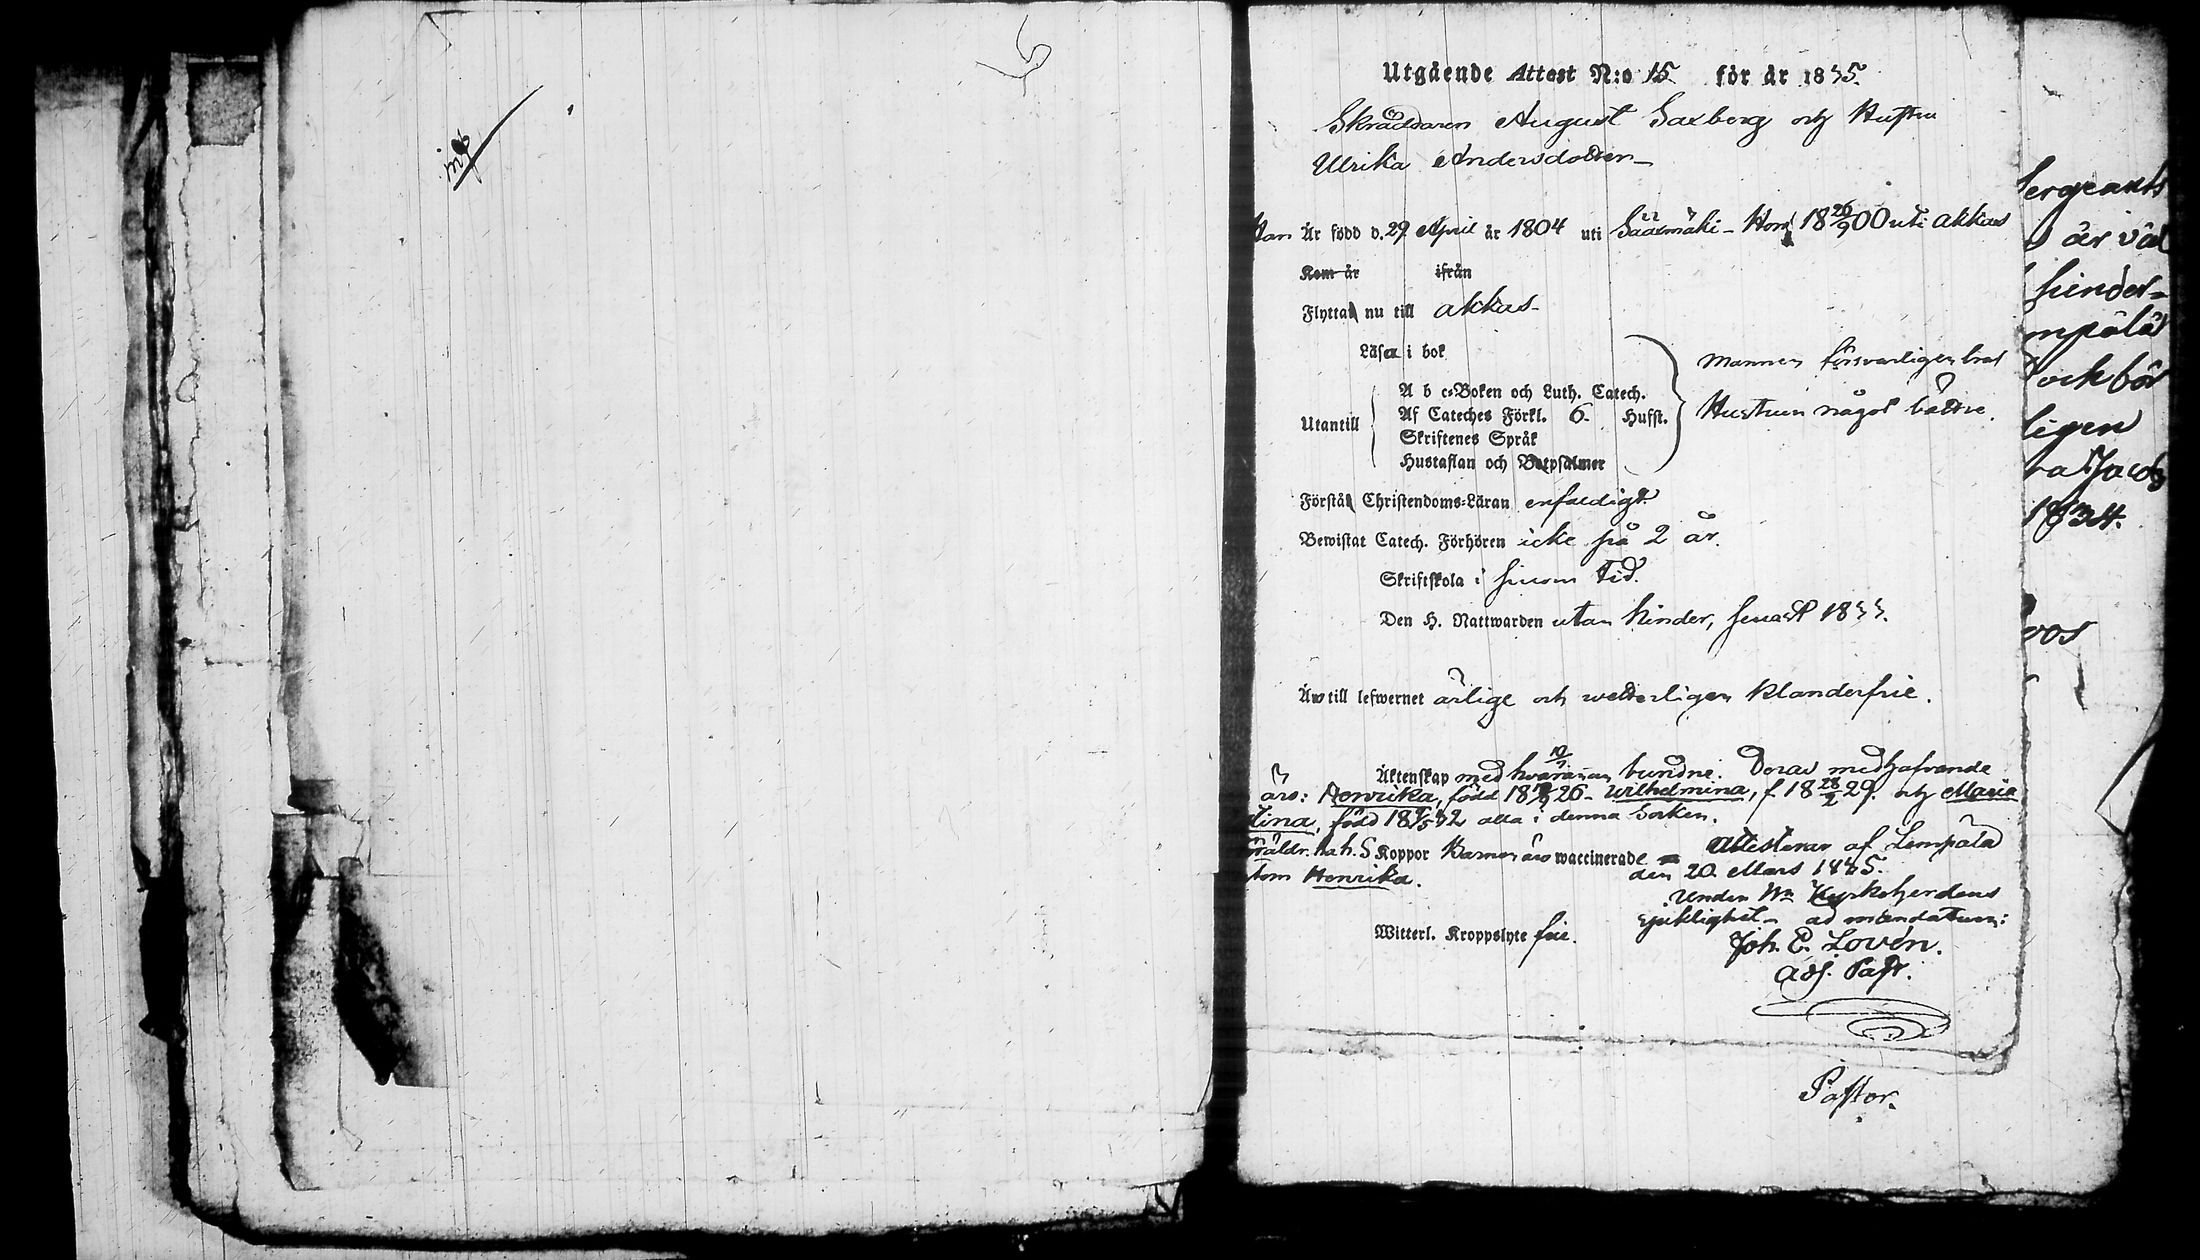 Utgående Attest N:o 15. för år 1835.
Skräddaren August Saxberg och Hustru
Ulrika Andersdotter
Han Är född d. 29 April år 1804 uti Sääxmäki - Hon 18 26/9 00 uti Akkas
Kom år ifrån
Flytta nu till Akkas
Läsa i bok
A b c-Boken och Luth. Catech.
Utantill Af Cateches Förkl. 6. Hufst.
Skriftenes Språk
Hustaflan och Botpsalmer
Mannen försvarligen bra
Hustrun något bättre.
Förstå Christendoms-Läran enfaldigt.
Bewistat Catech. Förhören icke på 2 år.
Skriftskola i sinom tid.
Den H. Nattwarden utan hinder, senast 1833.
Äro till lefwernet ärlige och wetterligen klanderfrie.
Äktenskap med hwarannan bundne. Deras medhafvande
äro: Henrika, född 18 26 - Wilhelmina, f. 18 28/2 29. och Maria
Stina, född 18 32 alla i denna Socken.
Föräldr. haft S Koppor Barnen äro waccinerade Attesterar af Lempälä
utom Henrika. den 20 Mars 1835.
Under Kyrkoherdens
sjuklighet - ad mandatum:
Witterl. Kroppslyte frie. Joh. E. Lovén.
Adj. Past.
Sergeants
är väl
hinder-
mpälä
och bör
ligen
1834.
Pastor.